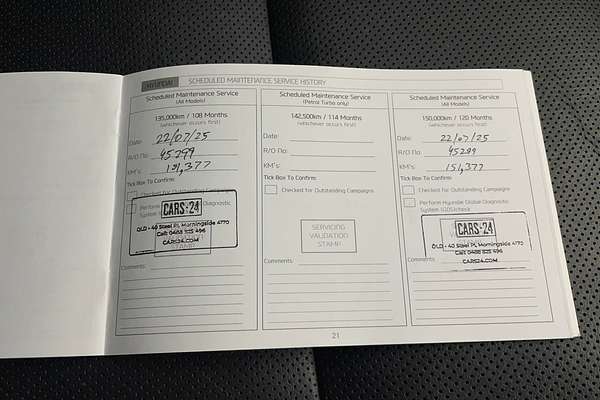 HYUNDAI SCHEDULED MAINTENANCE SERVICE HISTORY
Scheduled Maintenance Service
(All Models)
135,000km / 108 Months
(whichever occurs first)
Date: 22/07/25
R/O No: 45299
KM's: 151,377
Tick Box To Confirm:
Checked for Outstanding Campaigns
Perform Diagnostic
CARS24
QLD - 40 Steel Pl, Morningside 4770
CARS24.COM
STAMP
Comments:
Scheduled Maintenance Service
(Petrol Turbo only)
142,500km / 114 Months
(whichever occurs first)
Date:
R/O No:
KM's:
Tick Box To Confirm:
Checked for Outstanding Campaigns
SERVICING
VALIDATION
STAMP
Comments:
Scheduled Maintenance Service
(All Models)
150,000km / 120 Months
(whichever occurs first)
Date: 22/07/25
R/O No: 45299
KM's: 151,377
Tick Box To Confirm:
Checked for Outstanding Campaigns
Perform Hyundai Global Diagnostic
System (GDS)check
CARS24
QLD - 40 Steel Pl, Morningside 4770
CARS24.COM
Comments:
21